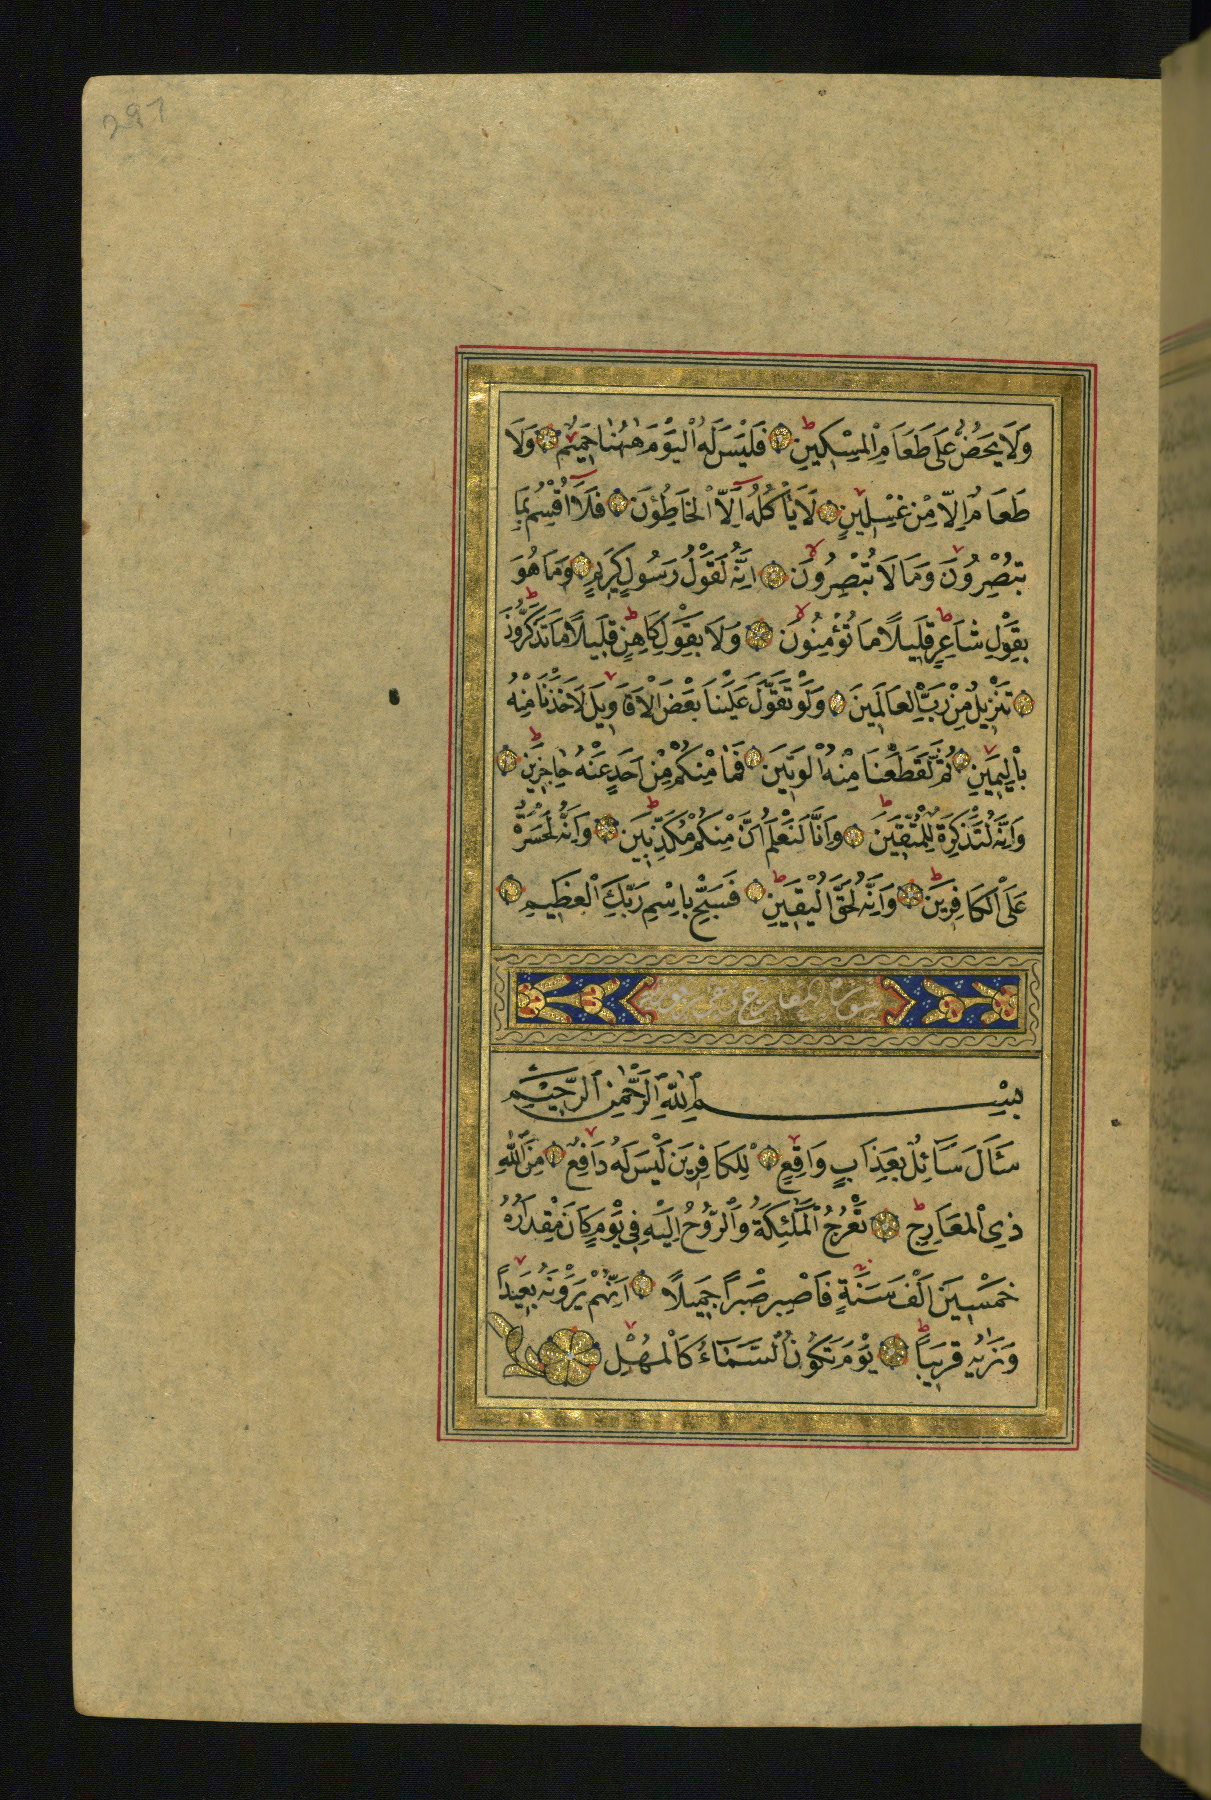 297
وَلَا يَحُضُّ عَلَى طَعَامِ الْمِسْكِينِ فَلَيْسَ لَهُ الْيَوْمَ هٰهُنَا حَمِيمٌ وَلَا
طَعَامٌ اِلَّا مِنْ غِسْلِينٍ لَا يَأْكُلُهُ اِلَّا الْخَاطِؤُنَ فَلَا اُقْسِمُ بِمَا
تُبْصِرُونَ وَمَا لَا تُبْصِرُونَ اِنَّهُ لَقَوْلُ رَسُولٍ كَرِيمٍ وَمَا هُوَ
بِقَوْلِ شَاعِرٍ قَلِيلًا مَا تُؤْمِنُونَ وَلَا بِقَوْلِ كَاهِنٍ قَلِيلًا مَا تَذَكَّرُونَ
تَنْزِيلٌ مِنْ رَبِّ الْعَالَمِينَ وَلَوْ تَقَوَّلَ عَلَيْنَا بَعْضَ الْاَقَاوِيلَ لَاَخَذْنَا مِنْهُ
بِالْيَمِينِ ثُمَّ لَقَطَعْنَا مِنْهُ الْوَتِينَ فَمَا مِنْكُمْ مِنْ اَحَدٍ عَنْهُ حَاجِزِينَ
وَاِنَّهُ لَتَذْكِرَةٌ لِلْمُتَّقِينَ وَاِنَّا لَنَعْلَمُ اَنَّ مِنْكُمْ مُكَذِّبِينَ وَاِنَّهُ لَحَسْرَةٌ
عَلَى الْكَافِرِينَ وَاِنَّهُ لَحَقُّ الْيَقِينِ فَسَبِّحْ بِاسْمِ رَبِّكَ الْعَظِيمِ
سورة المعارج
بِسْمِ اللّٰهِ الرَّحْمٰنِ الرَّحِيمِ
سَئَالَ سَائِلٌ بِعَذَابٍ وَاقِعٍ لِلْكَافِرِينَ لَيْسَ لَهُ دَافِعٌ مِنَ اللّٰهِ
ذِي الْمَعَارِجِ تَعْرُجُ الْمَلٰئِكَةُ وَالرُّوحُ اِلَيْهِ فِي يَوْمٍ كَانَ مِقْدَارُهُ
خَمْسِينَ اَلْفَ سَنَةٍ فَاصْبِرْ صَبْرًا جَمِيلًا اِنَّهُمْ يَرَوْنَهُ بَعِيدًا
وَنَرٰيهُ قَرِيبًا يَوْمَ تَكُونُ السَّمَاءُ كَالْمُهْلِ